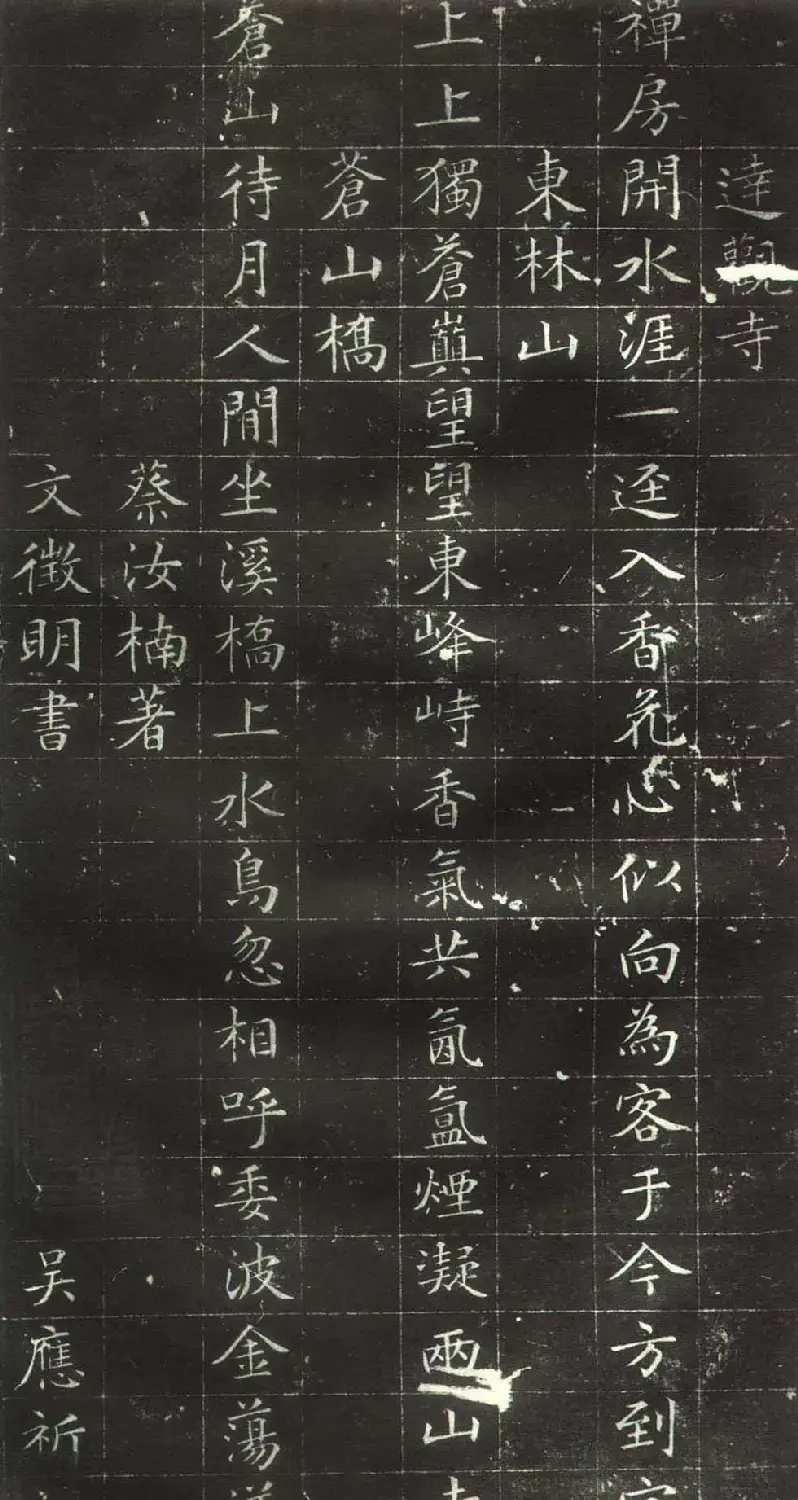 達觀寺
禪房開水涯一逕入香花心似向為客于今方到
東林山
上上獨蒼巔望望東峰峙香氣共氤氳煙凝兩山
蒼山橋
蒼山待月人閒坐溪橋上水鳥忽相呼委波金蕩
蔡汝楠著
文徵明書 吴應祈